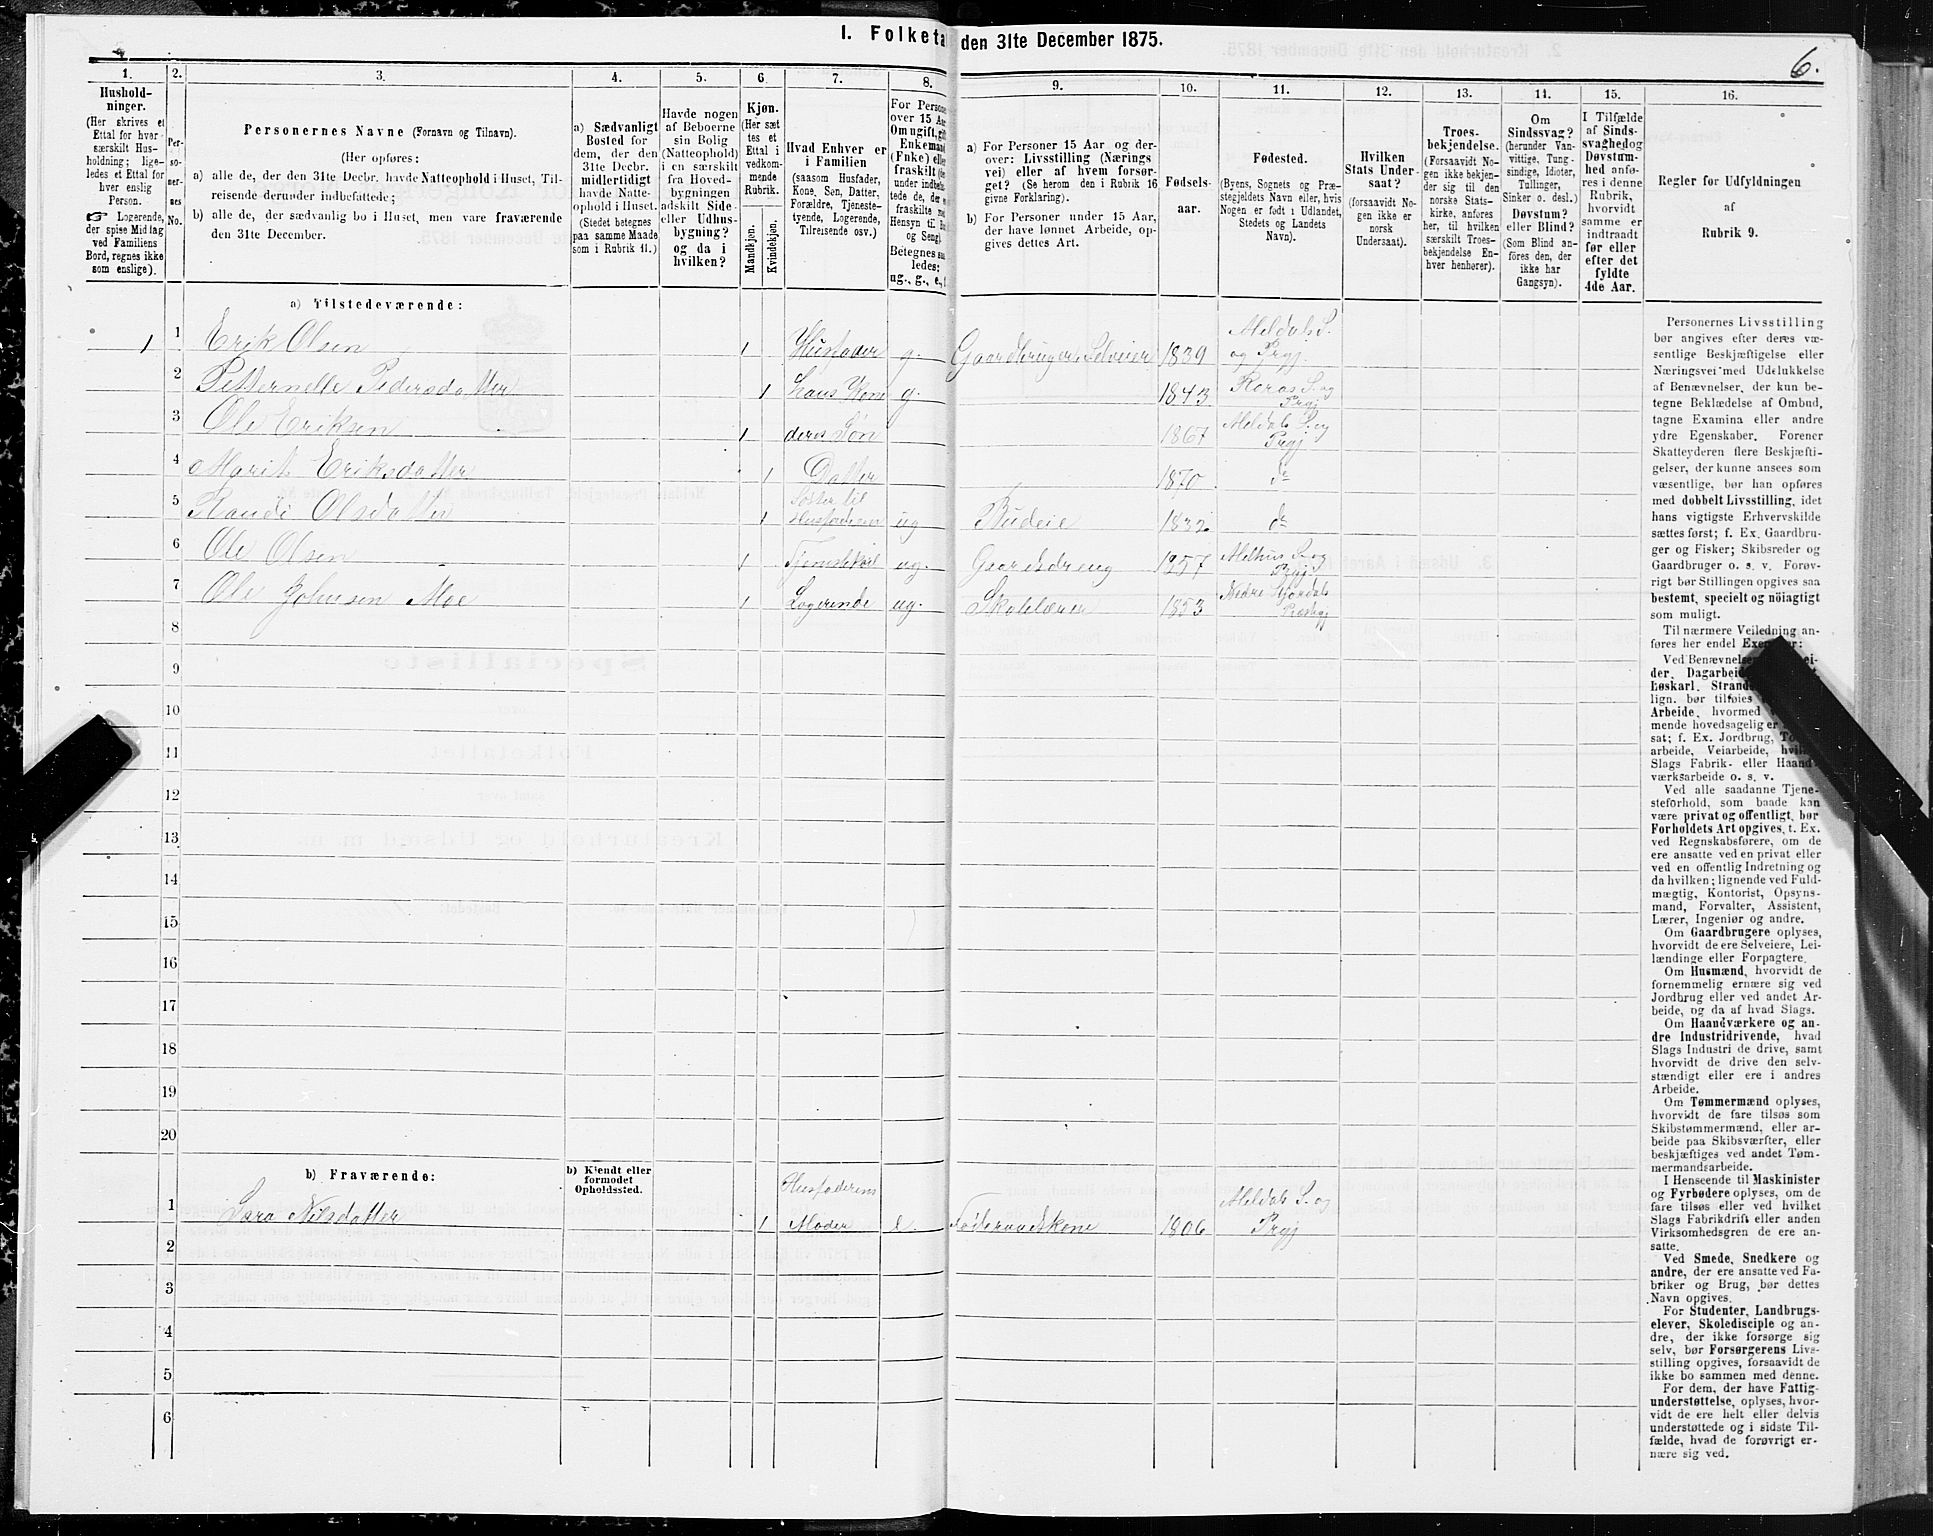 I. Folketa den 31te December 1875.
6.
1. 2. 3. 4. 5. 6. 7. 8. 9. 10. 11. 12. 13. 14. 15. 16.
Hushold-
ninger.
(Her skrives et
Ettal for hver
særskilt Hus-
holdning; lige-
ledes et Ettal for
hver enslig
Person.
☞ Logerende,
der spise Middag
ved Familiens
Bord, regnes ikke
som enslige).
Per-
so-
ner-
nes
No.
Personernes Navne (Fornavn og Tilnavn).
(Her opføres:
a) alle de, der den 31te Decbr. havde Natteophold i Huset, Til-
reisende derunder indbefattede;
b) alle de, der sædvanlig bo i Huset, men vare fraværende
den 31te December.
a) Sædvanligt
Bosted for
dem, der den
31te Decbr.
midlertidigt
havde Natte-
ophold i Huset.
(Stedet betegnes
paa samme Maade
som i Rubrik 11.)
Havde nogen
af Beboerne
sin Bolig
(Natteophold)
i en særskilt
fra Hoved-
bygningen
adskilt Side-
eller Udhus-
bygning?
og da i
hvilken?
Kjøn.
(Her sæt-
tes et
Ettal i
vedkom-
mende
Rubrik.
Mandkjøn.
Kvindekjøn.
Hvad Enhver er
i Familien
(saasom Husfader,
Kone, Søn, Datter,
Forældre, Tjeneste-
tyende, Logerende,
Tilreisende osv.)
For Persone
over 15 Aar
Om ugift, gift
Enkemand
(Enke) eller
fraskilt
under indbefat-
tede de, der
fraskilte
Hensyn til Bo
og Seng).
Betegnes saa-
ledes:
ug., g., e.,
a) For Personer 15 Aar og der-
over: Livsstilling (Nærings-
vei) eller af hvem forsør-
get? (Se herom den i Rubrik 16
givne Forklaring).
b) For Personer under 15 Aar,
der have lønnet Arbeide, op-
gives dettes Art.
Fødsels-
aar.
Fødested.
(Byens, Sognets og Præ-
stegjeldets Navn eller, hvis
Nogen er født i Udlandet,
Stedets og Landets
Navn).
Hvilken
Stats Under-
saat?
(forsaavidt No-
gen ikke er
norsk
Undersaat).
Troes-
bekjendelse.
(Forsaavidt No-
gen ikke bekjen-
der sig til den
norske Stats-
kirke, anføres
her, til hvilken
særskilt Troes-
bekjendelse En-
hver henhører).
Om
Sindssvag?
(herunder Van-
vittige, Tung-
sindige, Idioter,
Tullinger,
Sinker o. desl.)
Døvstum?
eller Blind?
(Som Blind an-
føres den, der
ikke har
Gangsyn).
I Tilfælde
af Sinds-
svaghed og
Døvstum-
hed anfø-
res i denne
Rubrik,
hvorvidt
samme er
indtraadt
før eller
efter det
fyldte
4de Aar.
Regler før Udfyldningen
af
Rubrik 9.
a) Tilstedeværende:
1 1 Erik Olsen 1 Husfader g. Gaardbruger Selveier 1839 Meldals S. og Prgj.
2 Petternelle Pedersdatter 1 Hans Kone g. 1843 Røros S. og Prgj
3 Ole Eriksen 1 deres Søn 1867 Meldals S. og Prgj
4 Marit Eriksdatter 1 Datter 1870 do
5 Randi Olsdatter 1 Søster til Husfaderen ug Budeie 1832 do
6 Ole Olsen 1 Tjenestekarl ug. Gaardsdreng 1857 Melhus S. og Prgj.
7 Ole Johnsen Moe 1 Logerende ug. Skolelærer 1853 Nedre Stjørdals Præstegj
8
9
10
11
12
13
14
15
16
17
18
19
20
b) Fraværende:
b) Kjendt eller
formodet
Opholdssted.
1 Sara Nilsdatter 1 Husfaderens Moder e. Føderaadskone 1806 Meldals S. og Prgj
2
3
4
5
6
Personernes Livsstilling
bør angives efter deres væ-
sentlige Beskjæftigelse eller
Næringsvei med Udelukkelse
af Benævnelser, der kun be-
tegne Beklædelse af Ombud,
tagne Examina eller andre
ydre Egenskaber. Forener
Skatteyderen flere Beskjæfti-
gelser, der kunne ansees som
væsentlige, bør han opføres
med dobbelt Livsstilling, idet
hans vigtigste Erhvervskilde
sættes først; f. Ex. Gaardbru-
ger og Fisker; Skibsreder og
Gaardbruger o. s. v. Forøv-
rigt bør Stillingen opgives saa
bestemt, specielt og nöiagtigt
som muligt.
Til nærmere Veiledning an-
føres her endel Exempler:
Ved Benævnelse
der, Dagarbei
Løskarl, Strand
lign. bør tilføies
Arbeide, hvormed
mende hovedsagelig er
sat; f. Ex. Jordbrug, To
arbeide, Veiarbeide, hvil
Slags Fabrik- eller Haand-
værksarbeide o. s. v.
Ved alle saadanne Tjene-
steforhold, som baade kan
være privat og offentligt, bør
Forholdets Art opgives, t. Ex.
ved Regnskabsførere, om de
ere ansatte ved en privat eller
ved en offentlig Indretning og
da hvilken; lignende ved Fuld-
mægtig, Kontorist, Opsyns-
mand, Forvalter, Assistent,
Lærer, Ingeniør og andre.
Om Gaardbrugere oplyses,
hvorvidt de ere Selveiere, Lei-
lændinge eller Forpagtere.
Om Husmænd, hvorvidt de
fornemmelig ernære sig ved
Jordbrug eller ved andet Ar-
beide, og da af hvad Slags.
Om Haandværkere og an-
dre Industridrivende, hvad
Slags Industri de drive, samt
hvorvidt de drive den selv-
stændigt eller ere i andres
Arbeide.
Om Tømmermænd oplyses,
hvorvidt de fare tilsøs som
Skibstømmermænd, eller ar-
beide paa Skibsværfter, eller
beskjæftiges ved andet Tøm-
mermandsarbeide.
I Henseende til Maskinister
og Fyrbødere oplyses, om de
fare tilsøs eller ved hvilket
Slags Fabrikdrift eller anden
Virksomhedsgren de ere an-
satte.
Ved Smede, Snedkere og
andre, der ere ansatte ved Fa-
briker og Brug, bør dettes
Navn opgives.
For Studenter, Landbrugs-
elever, Skoledisciple og an-
dre, der ikke forsørge sig
selv, bør Forsørgerens Livs-
stilling opgives, forsaavidt de
ikke bo sammen med denne.
For dem, der have Fattig-
understøttelse, oplyses, hvor-
vidt de ere helt eller delvis
understøttede og i sidste Til-
fælde, hvad de forøvrigt er-
nære sig ved.